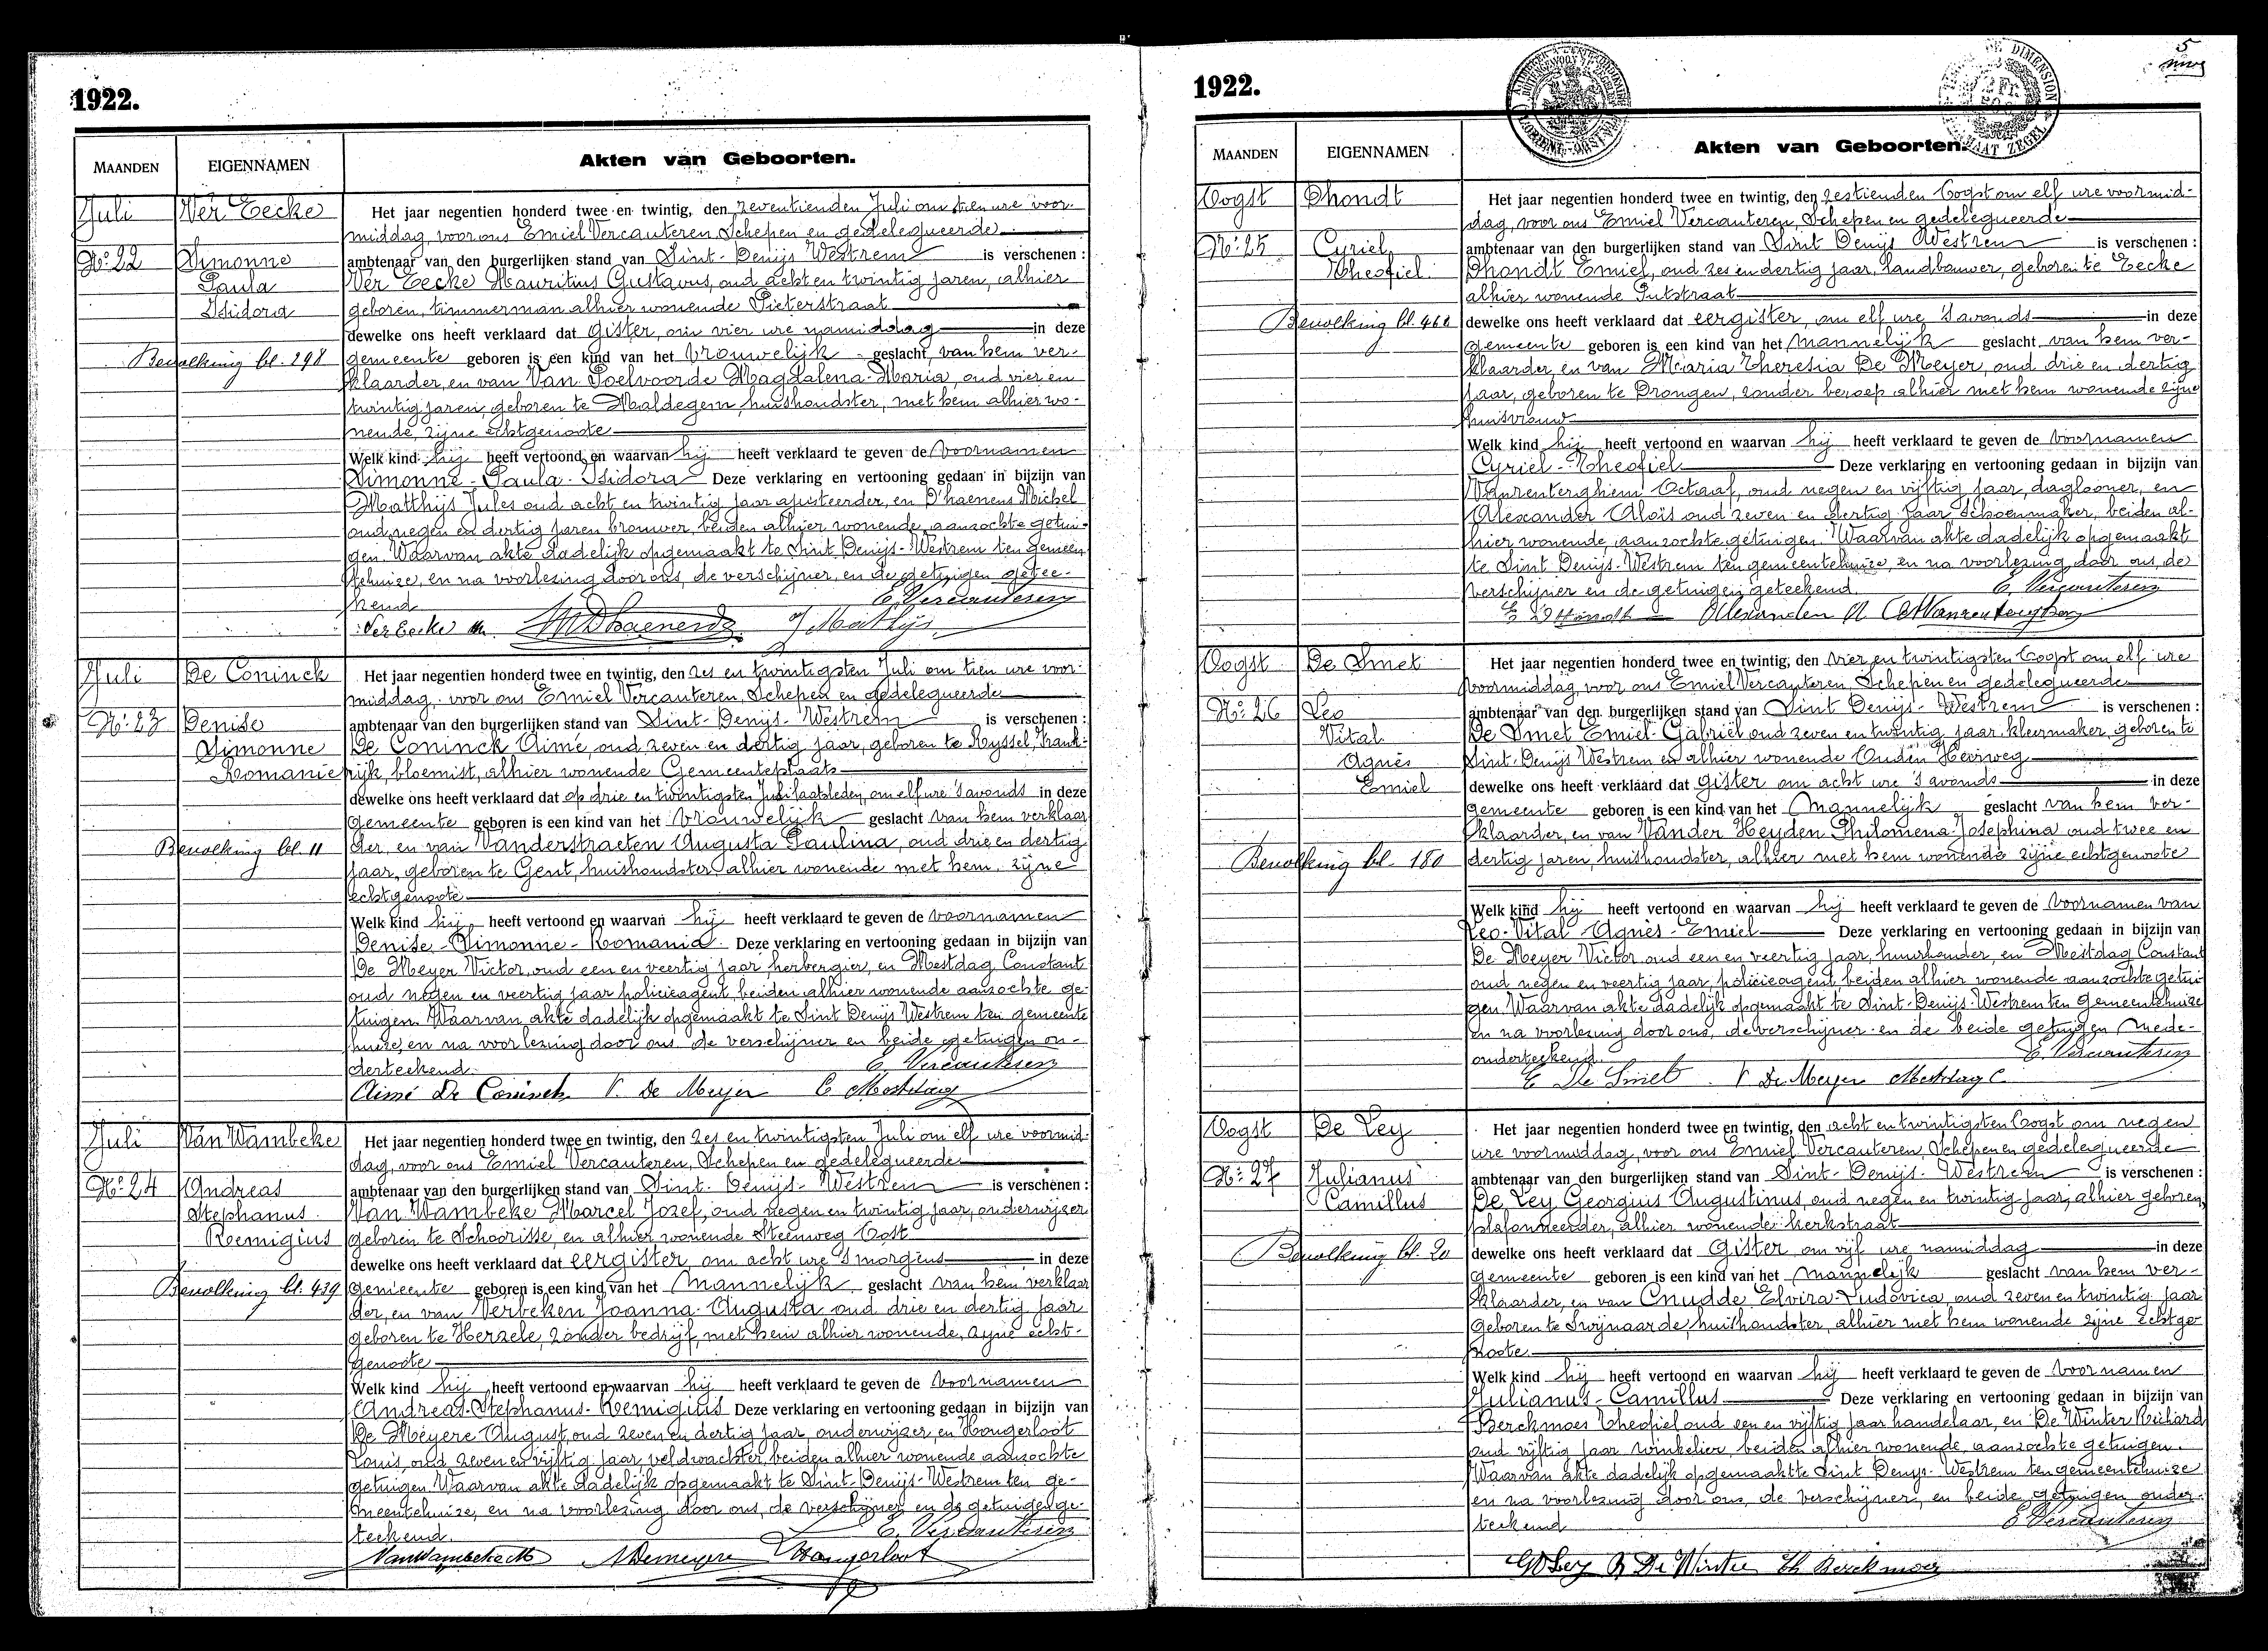 1922.
MAANDEN EIGENNAMEN Akten van Geboorten.
Juli Ver Eecke Het jaar negentien honderd twee en twintig, den zeventienden Juli om tien ure voor-
middag, voor ons Emiel Vercauteren, Schepen en gedelegueerde
No 22 Simonne ambtenaar van den burgerlijken stand van Sint-Denijs Westrem is verschenen :
Paula Ver Eecke Mauritius Gustavus, oud acht en twintig jaren, alhier
Isidora geboren, timmerman alhier wonende Pieterstraat
dewelke ons heeft verklaard dat gister, om vier ure namiddag in deze
Bevolking bl. 298 gemeente geboren is een kind van het vrouwelijk geslacht, van hem ver-
klaarder, en van Van Poelvoorde Magdalena-Maria, oud vier en
twintig jaren, geboren te Maldegem, huishoudster, met hem alhier wo-
nende, zijne echtgenoote
Welk kind hij heeft vertoond en waarvan hij heeft verklaard te geven de voornamen
Simonne-Paula-Isidora Deze verklaring en vertooning gedaan in bijzijn van
Matthijs Jules oud acht en twintig jaar ajusteerder, en D'haenens Michel
oud negen en dertig jaren brouwer, beiden alhier wonende, aanzochte getui-
gen. Waarvan akte dadelijk opgemaakt te Sint Denijs-Westrem ten gemeen-
tehuize, en na voorlezing door ons, de verschijner, en de getuigen getee-
kend E. Vercauteren
Ver Eecke M. MDhaenens J Mathijs
Juli De Coninck Het jaar negentien honderd twee en twintig, den zes en twintigsten Juli om tien ure voor-
middag, voor ons Emiel Vercauteren, Schepen en gedelegueerde
No 23 Denise ambtenaar van den burgerlijken stand van Sint-Denijs-Westrem is verschenen :
Simonne De Coninck Aimé, oud zeven en dertig jaar, geboren te Ryssel, Frank-
Romanie rijk, bloemist, alhier wonende Gemeenteplaats
dewelke ons heeft verklaard dat op drie en twintigsten Juli laatstleden, om elf ure 's avonds in deze
gemeente geboren is een kind van het vrouwelijk geslacht van hem verklaar
Bevolking bl. 11 der, en van Vanderstraeten Augusta Paulina, oud drie en dertig
jaar, geboren te Gent, huishoudster, alhier wonende met hem, zijne
echtgenoote
Welk kind hij heeft vertoond en waarvan hij heeft verklaard te geven de voornamen
Denise-Simonne-Romania Deze verklaring en vertooning gedaan in bijzijn van
De Meyer Victor, oud een en veertig jaar herbergier, en Mestdag Constant
oud negen en veertig jaar policieagent, beiden alhier wonende aanzochte ge-
tuigen. Waarvan akte dadelijk opgemaakt te Sint Denijs Westrem ten gemeente
huize, en na voorlezing door ons de verschijner en beide getuigen on-
derteekend. E. Vercauteren
Aimé De Coninck V. De Meyer C Mestdag
Juli Van Wambeke Het jaar negentien honderd twee en twintig, den zes en twintigsten Juli om elf ure voormid-
dag, voor ons Emiel Vercauteren, Schepen en gedelegueerde
No 24 Andreas ambtenaar van den burgerlijken stand van Sint-Denijs-Westrem is verschenen :
Stephanus Van Wambeke Marcel Jozef, oud negen en twintig jaar, onderwijzer
Remigius geboren te Schoorisse, en alhier wonende Steenweg Oost
dewelke ons heeft verklaard dat eergister, om acht ure 's morgens in deze
Bevolking bl. 439 gemeente geboren is een kind van het mannelijk geslacht van hem verklaar
der, en van Verbeken Joanna-Augusta oud drie en dertig jaar
geboren te Herzele, zonder bedrijf, met hem alhier wonende, zyne echt-
genoote
Welk kind hij heeft vertoond en waarvan hij heeft verklaard te geven de voornamen
Andreas-Stephanus-Remigius Deze verklaring en vertooning gedaan in bijzijn van
De Meyere August, oud zeven en dertig jaar onderwijzer, en Hongerloot
Louis, oud zeven en vijftig jaar, veldwachter, beiden alhier wonende aanzochte
getuigen. Waarvan akte dadelijk opgemaakt te Sint-Denijs-Westrem ten ge-
meentehuize, en na voorlezing door ons, de verschijner en de getuigen ge-
teekend. E. Vercauteren
VanWambeke M ADemeyere Hongerloot
1922.
5
MAANDEN EIGENNAMEN Akten van Geboorten.
Oogst Dhondt Het jaar negentien honderd twee en twintig, den zestienden Oogst om elf ure voormid-
dag, voor ons Emiel Vercauteren, Schepen en gedelegueerde
No 25 Cyriel ambtenaar van den burgerlijken stand van Sint Denijs Westrem is verschenen :
Theofiel Dhondt Emiel, oud zes en dertig jaar, landbouwer, geboren te Eecke
alhier wonende Putstraat
Bevolking bl. 460 dewelke ons heeft verklaard dat eergister, om elf ure 's avonds in deze
gemeente geboren is een kind van het mannelijk geslacht van hem ver-
klaarder, en van Maria Theresia De Meyer, oud drie en dertig
jaar, geboren te Drongen, zonder beroep alhier met hem wonende zijne
huisvrouw
Welk kind hij heeft vertoond en waarvan hij heeft verklaard te geven de voornamen
Cyriel-Theofiel Deze verklaring en vertooning gedaan in bijzijn van
Vanrenterghem Octaaf, oud negen en vijftig jaar, daglooner, en
Alexander Aloïs oud zeven en dertig jaar schoenmaker, beiden al-
hier wonende, aanzochte getuigen. Waarvan akte dadelijk opgemaakt
te Sint Denijs-Westrem ten gemeentehuize, en na voorlezing door ons, de
verschijner en de getuigen geteekend. E. Vercauteren
E D'Hondt Alexander A Vanrenterghem
Oogst De Smet Het jaar negentien honderd twee en twintig, den vier en twintigsten Oogst om elf ure
voormiddag, voor ons Emiel Vercauteren, Schepen en gedelegueerde
No 26 Leo ambtenaar van den burgerlijken stand van Sint Denijs-Westrem is verschenen :
Vital De Smet Emiel-Gabriël oud zeven en twintig jaar, kleermaker, geboren te
Agnès Sint-Denijs Westrem en alhier wonende Ouden Heirweg
Emiel dewelke ons heeft verklaard dat gister om acht ure 's avonds in deze
gemeente geboren is een kind van het mannelijk geslacht van hem ver-
klaarder, en van Vander Heyden Philomena-Josephina oud twee en
Bevolking bl. 180 dertig jaren huishoudster, alhier met hem wonende zijne echtgenoote
Welk kind hij heeft vertoond en waarvan hij heeft verklaard te geven de voornamen van
Leo-Vital Agnès-Emiel Deze verklaring en vertooning gedaan in bijzijn van
De Meyer Victor oud een en veertig jaar, huurhouder, en Mestdag Constant
oud negen en veertig jaar, policieagent, beiden alhier wonende aanzochte getui
gen. Waarvan akte dadelijk opgemaakt te Sint-Denijs-Westrem ten gemeentehuize
en na voorlezing door ons, de verschijner en de beide getuigen mede-
onderteekend. E. Vercauteren
E De Smet V De Meyer Mestdag C.
Oogst De Ley Het jaar negentien honderd twee en twintig, den acht en twintigsten Oogst om negen
ure voormiddag, voor ons Emiel Vercauteren, Schepen en gedelegueerde
No 27 Julianus ambtenaar van den burgerlijken stand van Sint-Denijs-Westrem is verschenen :
Camillus De Ley Georgius Augustinus, oud negen en twintig jaar, alhier geboren,
plafonneerder, alhier wonende kerkstraat
Bevolking bl. 20 dewelke ons heeft verklaard dat Gister om vijf ure namiddag in deze
gemeente geboren is een kind van het mannelijk geslacht van hem ver-
klaarder, en van Cnudde Elvira-Ludovica, oud zeven en twintig jaar
geboren te Swijnaarde, huishoudster, alhier met hem wonende zijne echtge
noote.
Welk kind hij heeft vertoond en waarvan hij heeft verklaard te geven de voornamen
Julianus-Camillus Deze verklaring en vertooning gedaan in bijzijn van
Berckmoes Theofiel oud een en vijftig jaar handelaar, en De Winter Richard
oud vijftig jaar winkelier, beiden alhier wonende, aanzochte getuigen.
Waarvan akte dadelijk opgemaakt te Sint Denys-Westrem ten gemeentehuize
en na voorlezing door ons, de verschijner, en beide getuigen onder-
teekend E Vercauteren
G De Ley R De Winter Th Berckmoes